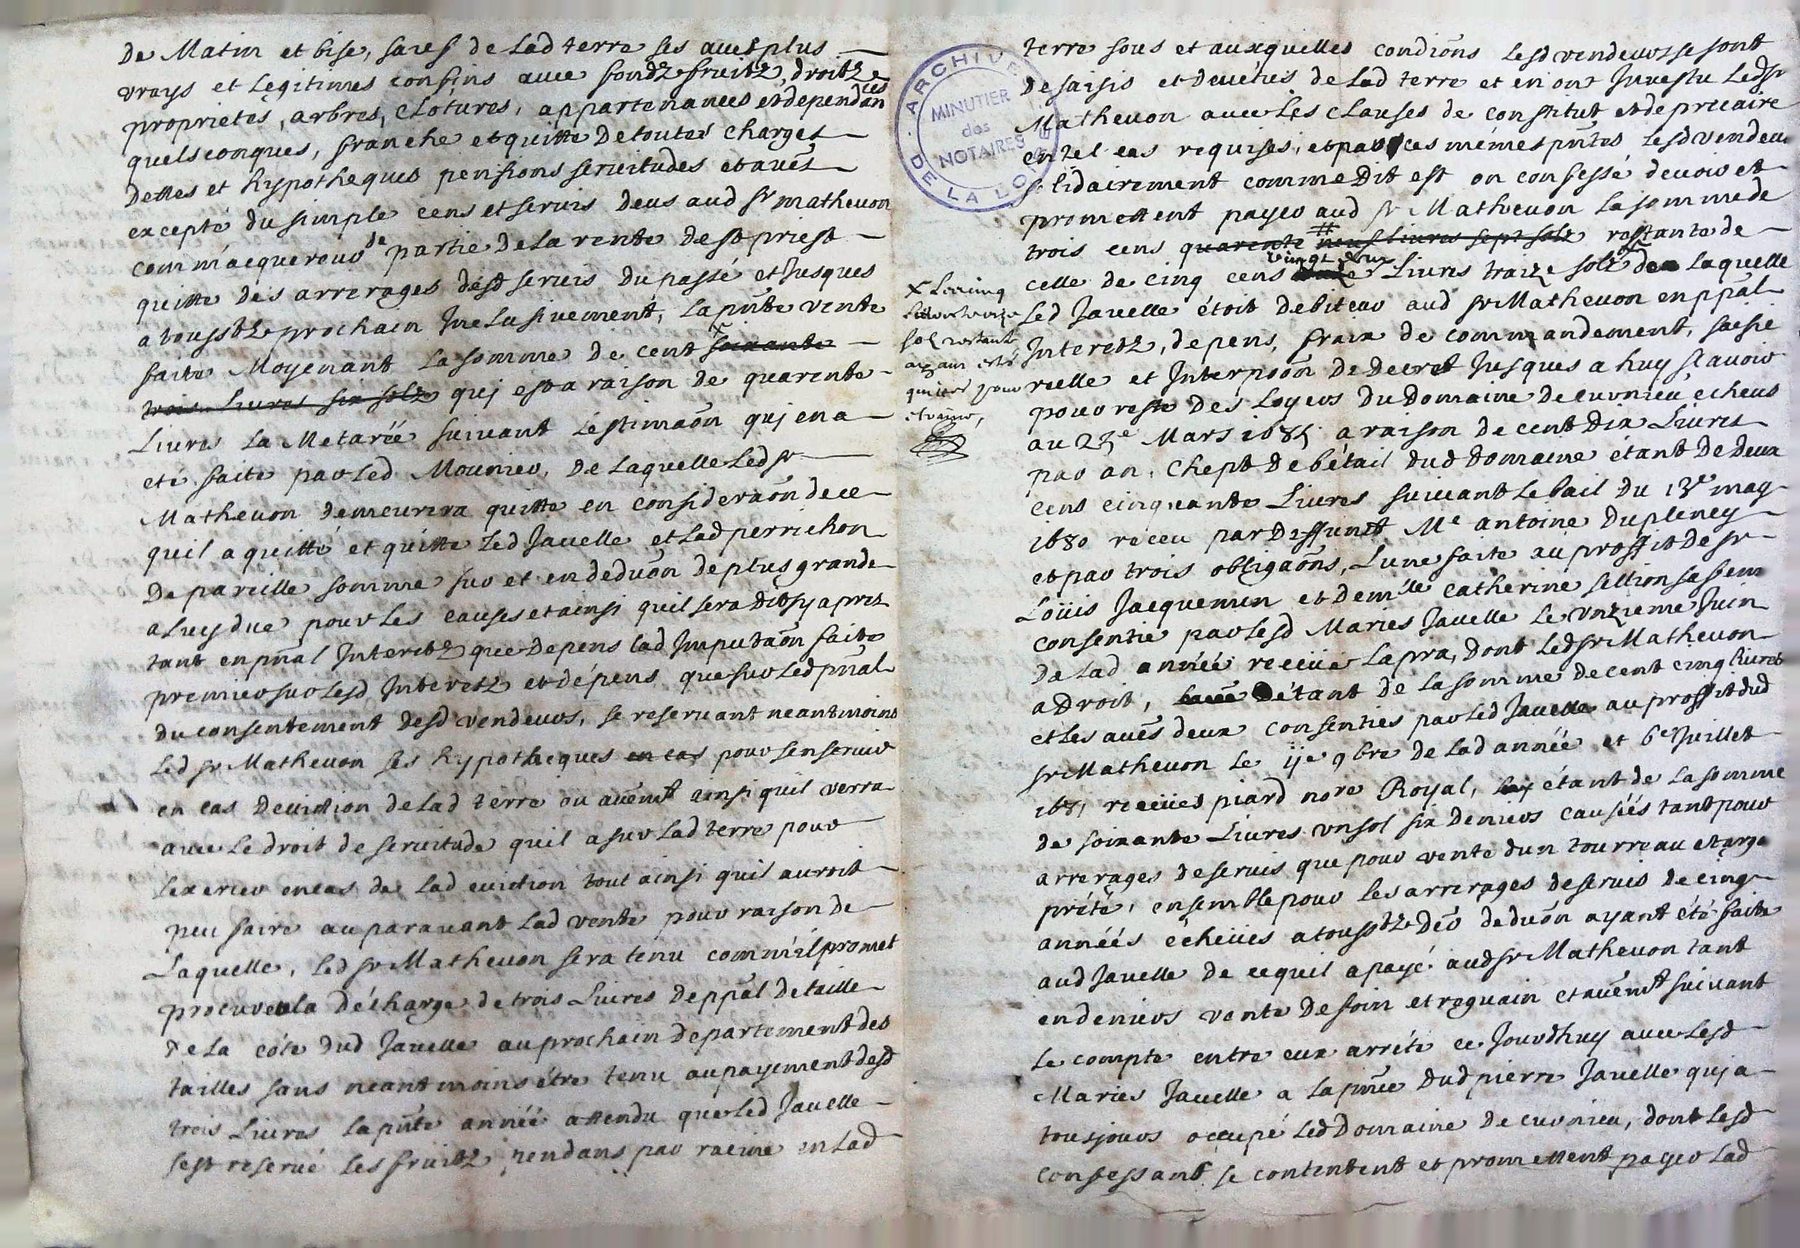 de Matin et bise, sauf de lad terre ses aues plus
vrays et legitimes confins auec fondz fruitz, droitz
proprietés, arbres, clotures, appartenances et dependances
quelsconques, franche et quitte de toutes charges
dettes et hypotheques pensions seruitudes et aues
excepté du simple cens et seruis deus aud sr matheuon
comm acquereur de partie de la rente de st priest
quitte des arrerages desd seruis du passé et jusques
a toussts prochain Inclusiuement, la pnte vente
faite Moyenant la somme de cent soixante
trois liures six solz qui est a raison de quarente
Liures la Metarée suiuant lestimaon qui en a
eté faite par led Mounier, de laquelle led sr
Matheuon demeurera quitte en consideraon de ce
quil a quitté et quitte led Jauelle et lad perrichon
de pareille somme sur et en deduon de plus grande
a luy due pour les causes et ainsi quil sera dit sy apres
tant en pnal Interetz que depens lad Imputaon faite
premier sur lesd Interetz et dépens que sur led pnal
du consentement desd vendeurs, se reseruant neantmoins
Led sr Matheuon ses hypotheques en cas pour sen seruir
en cas deuiction de lad terre ou auemt ainsi quil verra
auec le droit de seruitude quil a sur lad terre pour
lexercer en cas de lad euiction tout ainsi quil auroit
peu faire au parauant lad vente pour raison de
Laquelle, led sr Matheuon sera tenu comm il promet
procurer la décharge de trois Liures de ppal de taille
de la côte dud Jauelle au prochain departement des
tailles sans neantmoins être tenu au payement desd
trois Liures la pnte année attendu que led Jauelle
sest reserué les fruitz pendans par racine en lad
ARCHIVES D. DE LA LOIRE
MINUTIER
des
NOTAIRES
terre sous et auxquelles condions lesd vendeurs se sont
desaisis et deuétus de lad terre et en ont Inuestu led sr
Matheuon auec les clauses de constitut et de precaire
en tel cas requises, et par ces mémes pntes lesd vendeurs
solidairement comme dit est on confessé deuoir et
promettent payer aud sr Matheuon la somme de
trois cens quarente neuf liures sept solz restante de
celle de cinq cens vingt deux Liures traize solz de laquelle
Led Jauelle étoit debiteur aud sr Matheuon en ppal
Interetz, depens, fraix de commandement, saisie
reelle et Interpoon de decret Jusques a huy scauoir
pour reste des loyers du domaine de curnieu écheus
au 25e Mars 1685 a raison de cent dix Liures
par an. Chept de bétail dud domaine étant de deux
cens cinquante Liures suiuant le bail du 13e may
1680 receu par deffunct Me antoine dupleney
et par trois obligaons, L'une faite au proffit de sr
Loüis Jacquemin et demlle catherine sillion sa fem
consentie par lesd Maries Jauelle le vnzieme Juin
de lad année receüe Lapra, dont led sr Matheuon
a droit, étant de la somme de cent cinq liures
et les aues deux consenties par led Jauelle au proffit dud
sr Matheuon le ije 9bre de lad année et 6e Juillet
1681 receües piard nore Royal, étant de la somme
de soixante Liures vn sol six deniers causées tant pour
arrerages de seruis que pour vente dun tourreau et arge
prété, ensemble pour les arrerages de seruis de cinq
années écheües a toussts der deduon ayant été faite
aud Jauelle de ce quil a payé aud sr Matheuon tant
en deniers vente de foin et reguain et auemt suiuant
le compte entre eux arrété ce Jourdhuy auec lesd
Maries Jauelle a la pnce dud pierre Jauelle qui a
tousjours occupé led domaine de curnieu, dont lesd
confessant se contentent et promettent payer lad
x
sol restant
quitté pour